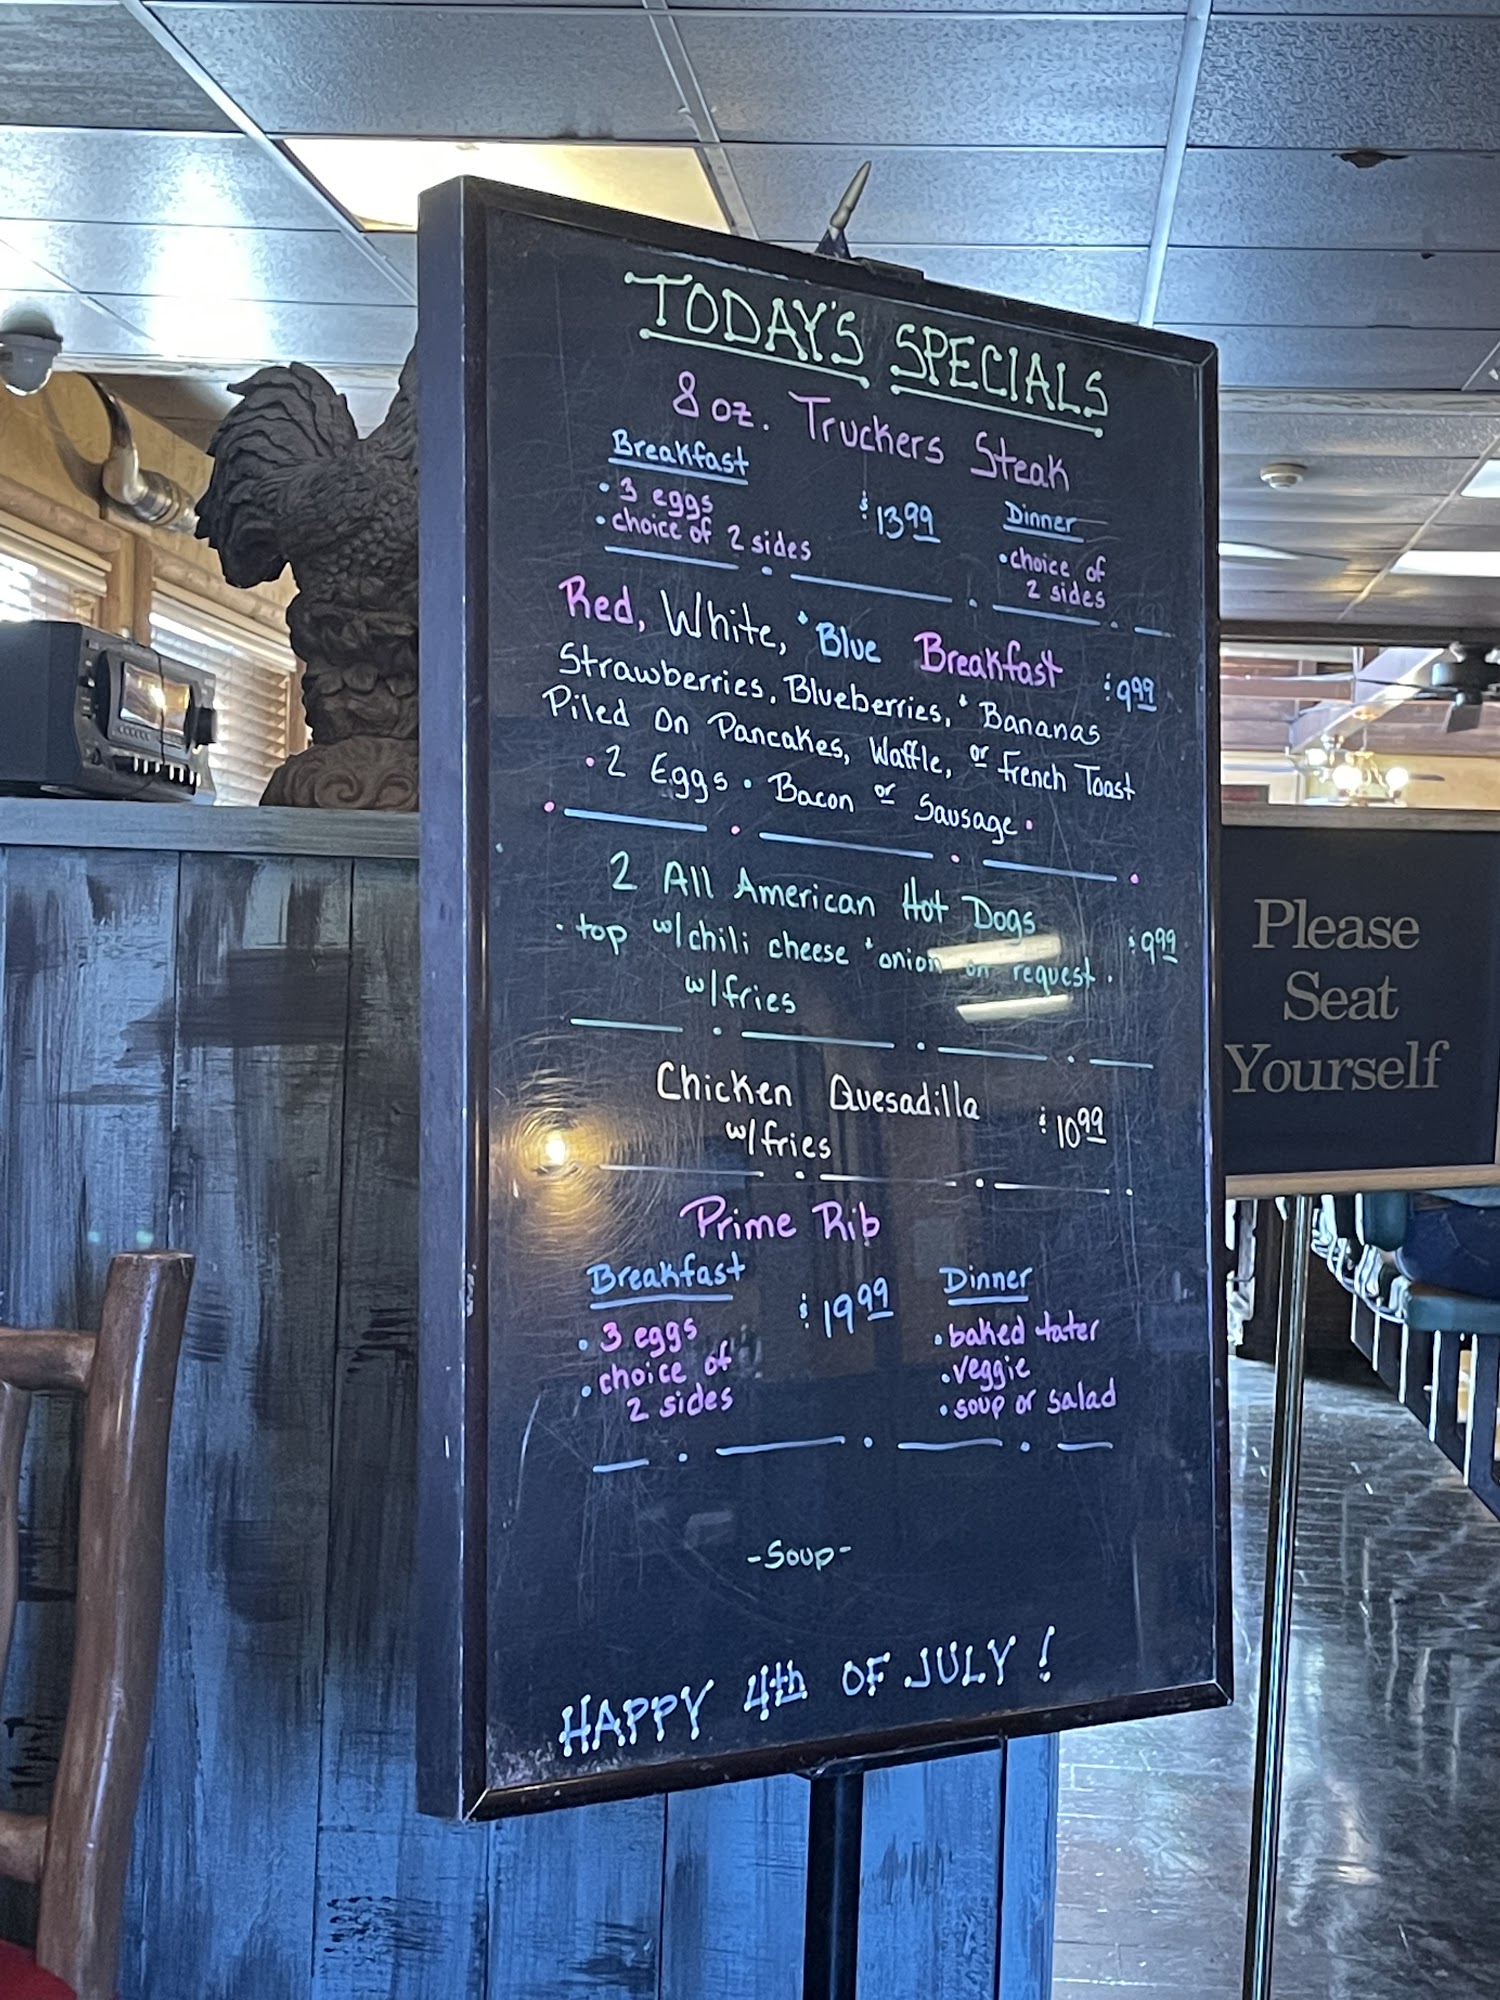 TODAY'S SPECIALS
8 oz. Truckers Steak
Breakfast
• 3 eggs
• choice of 2 sides
$13.99
Dinner
• choice of
2 sides
Red, White, & Blue Breakfast $9.99
Strawberries, Blueberries, & Bananas
Piled On Pancakes, Waffle, or French Toast
• 2 Eggs • Bacon or Sausage •
2 All American Hot Dogs
• top w/chili cheese & onion on request • $9.99
w/fries
Chicken Quesadilla $10.99
w/fries
Prime Rib
Breakfast
• 3 eggs
• choice of
2 sides
$19.99
Dinner
• baked tater
• veggie
• soup or salad
-Soup-
HAPPY 4th OF JULY!
Please
Seat
Yourself